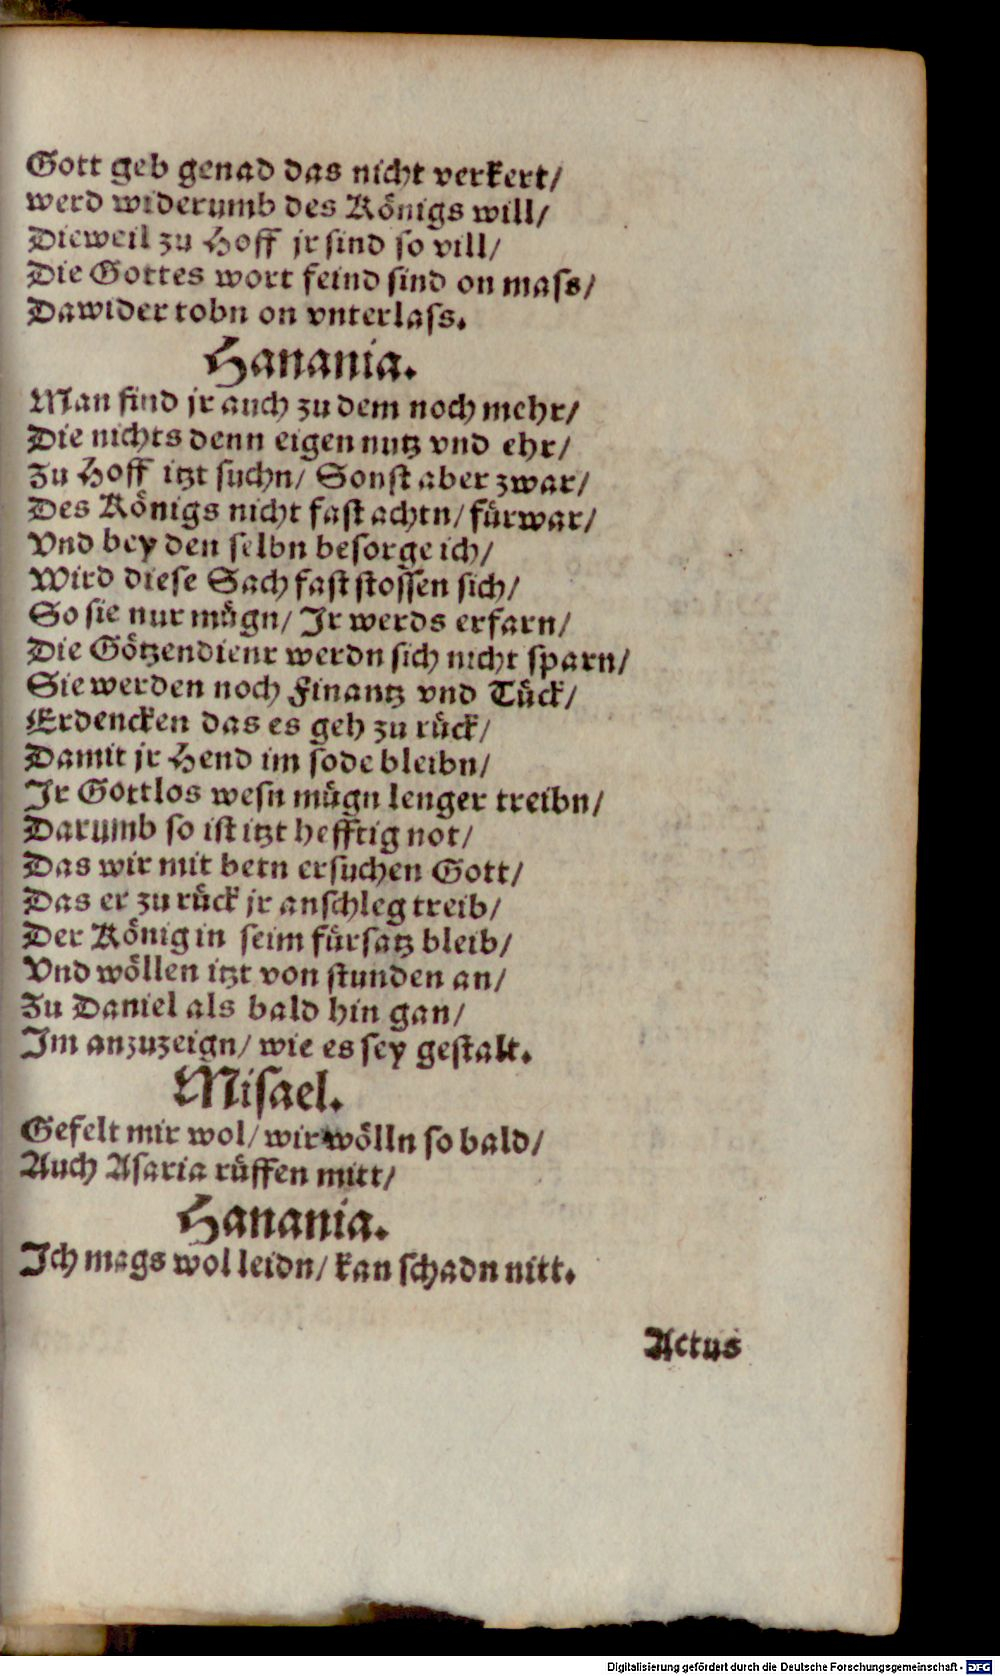 Gott geb genad das nicht verkert/
werd widerumb des Koͤnigs will/
Dieweil zu Hoff jr sind so vill/
Die Gottes wort feind sind on mass/
Dawider tobn on vnterlass.
Hanania.
Man find jr auch zu dem noch mehr/
Die nichts denn eigen nutz vnd ehr/
Zu Hoff itzt suchn/ Sonst aber zwar/
Des Koͤnigs nicht fast achtn/ fuͤrwar/
Vnd bey den selbn besorge ich/
Wird diese Sach fast stossen sich/
So sie nur muͤgn/ Jr werds erfarn/
Die Goͤtzendienr werdn sich nicht sparn/
Sie werden noch Finantz vnd Tuͤck/
Erdencken das es geh zu ruͤck/
Damit jr Hend im sode bleibn/
Jr Gottlos wesn muͤgn lenger treibn/
Darumb so ist itzt hefftig not/
Das wir mit betn ersuchen Gott/
Das er zu ruͤck jr anschleg treib/
Der Koͤnig in seim fuͤrsatz bleib/
Vnd woͤllen itzt von stunden an/
Zu Daniel als bald hin gan/
Jm anzuzeign/ wie es sey gestalt.
Misael.
Gefelt mir wol/ wir woͤlln so bald/
Auch Asaria ruͤffen mitt/
Hanania.
Jch mags wol leidn/ kan schadn nitt.
Actus
Digitalisierung gefördert durch die Deutsche Forschungsgemeinschaft - DFG